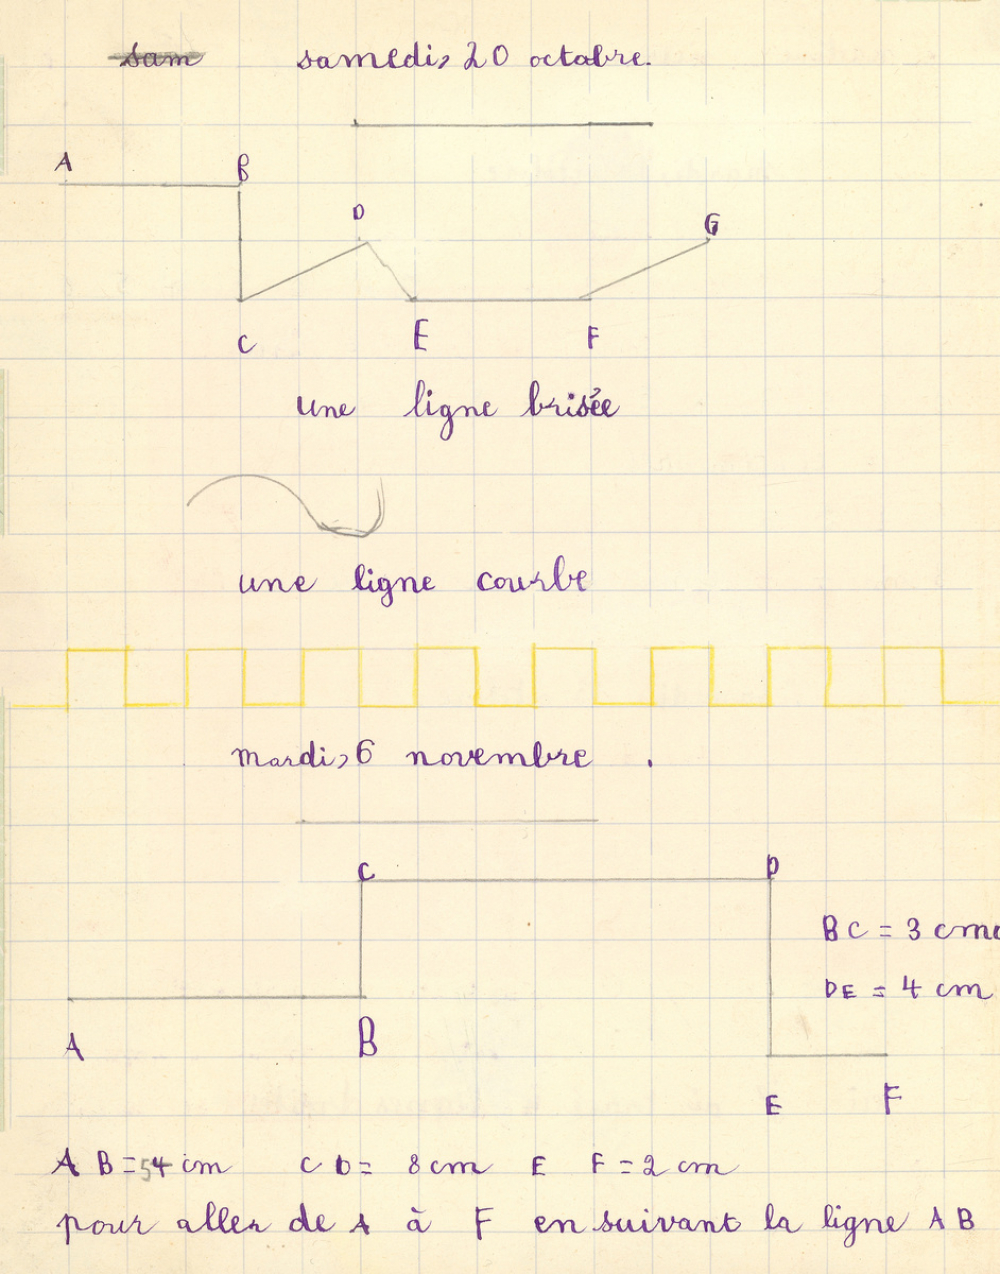 sam samedi, 20 octobre.
A B
D G
C E F
une ligne brisée
une ligne courbe
mardi, 6 novembre .
C D
BC = 3 cm
DE = 4 cm
A B
E F
A B = 54 cm C D = 8 cm E F = 2 cm
pour aller de A à F en suivant la ligne A B